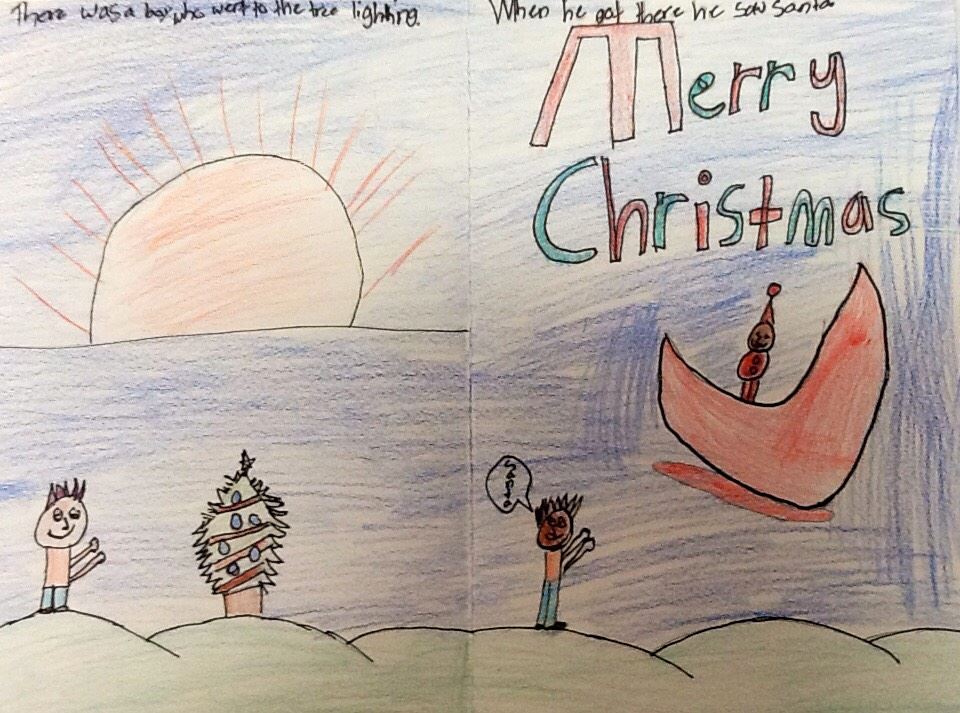 There was a boy who went to the tree lighting.
When he got there he saw santa
Merry
Christmas
Santa